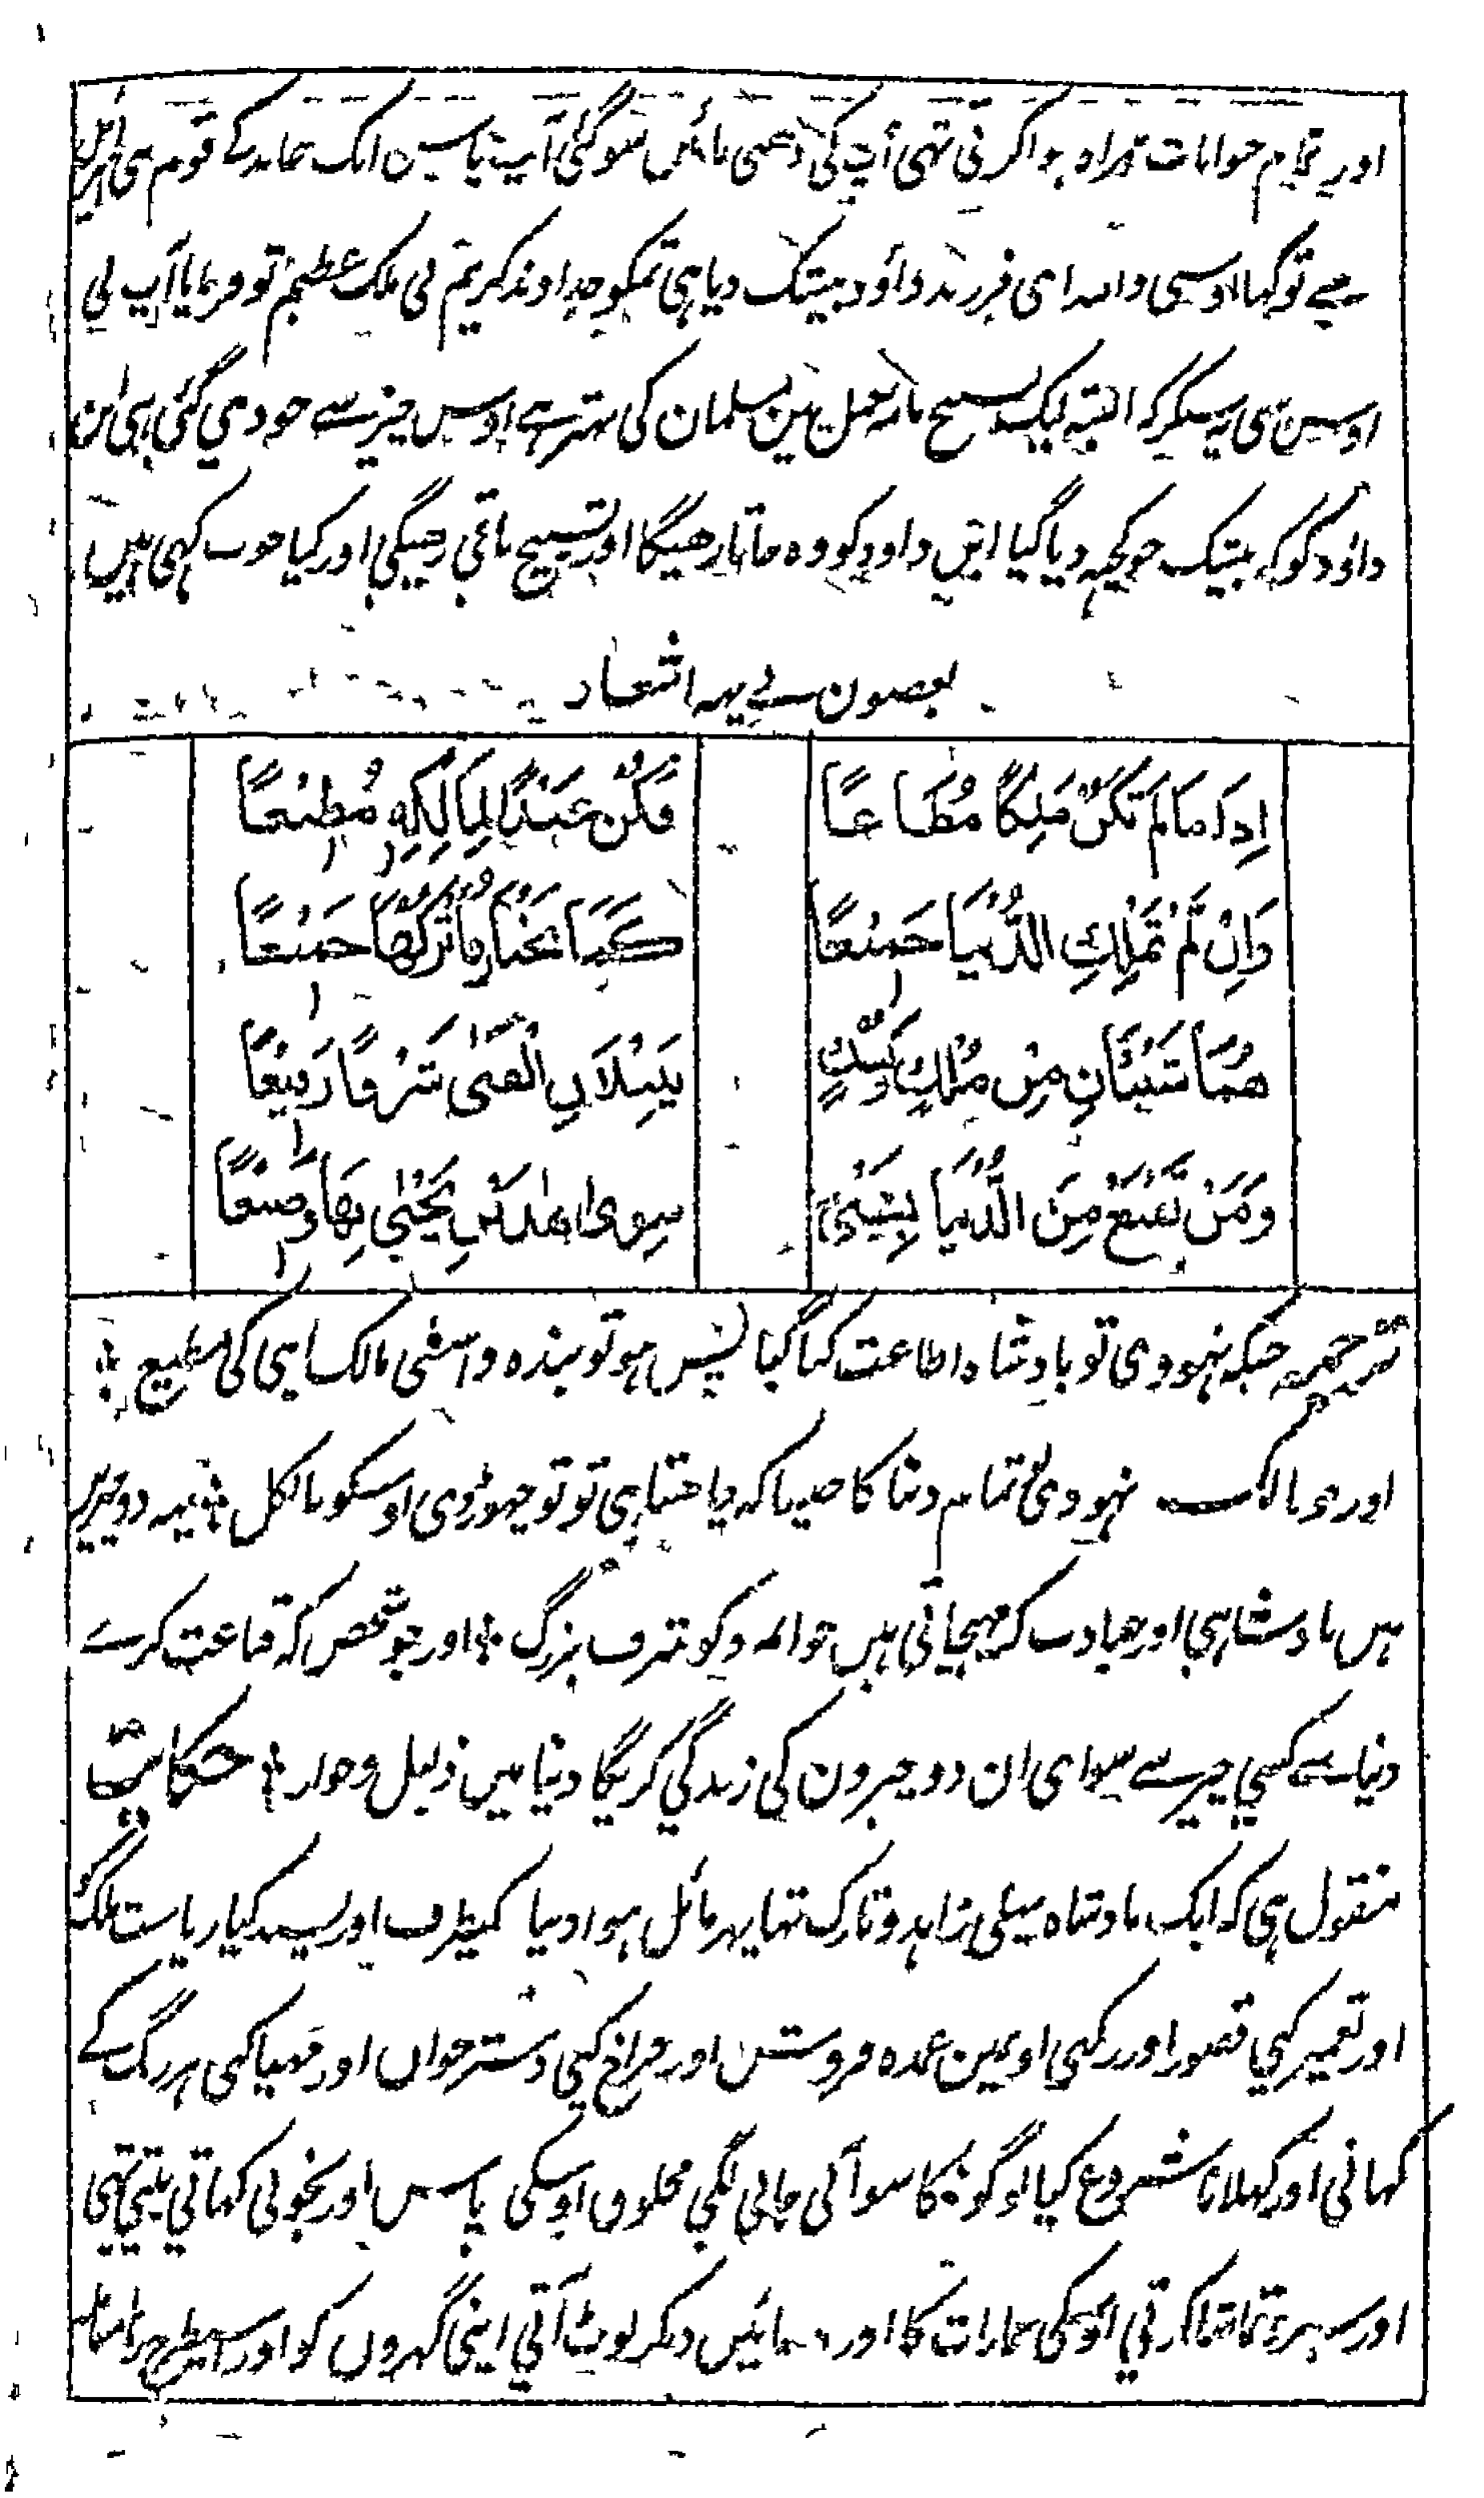 اور تمام حیوانات ہمراہ ہوا کرتی تہی آپ کی دہنی بائیں سو گئی آپ پاس ایک عابد کے قوم بنی اسرائیل
سے تو کہا اوسی واللہ ای فرزند داؤد بیشک دیا ہی تمکو خداوند کریم نی ملک عظیم تو فرمایا آپ نی
اوسی یہ سنکر کہ البتہ ایک تسبیح نامہ عمل مین مسلمان کی بہتر ہے اوس چیز سے جو دی گئی ہی ابن
داؤد کو کہ بیشک جو کچہ دیا گیا ابن داود کو وہ جاتا رہیگا اور تسبیح باقی رہیگی اور کیا خوب کہی ہیں
بعضون نے یہہ اشعار
اِذَا مَا لَمْ تَكُنْ مَلِكًا مُطَاعًا
فَكُنْ عَبْدًا لِمَالِكِهِ مُطِيْعًا
وَاِنْ لَمْ تَمْلِكِ الدُّنْيَا جَمِيْعًا
كَمَا تَخْتَارُ فَاتْرُكْهَا جَمِيْعًا
هُمَا شَيْئَانِ مِنْ مُلْكٍ وَنُسُكٍ
يُنِيْلَانِ الْفَتٰى شَرَفًا رَفِيْعًا
وَمَنْ يَقْنَعْ مِنَ الدُّنْيَا بِشَيْءٍ
سِوٰى هٰذَيْنِ يَحْيٰى بِهَا وَضِيْعًا
ترجمہ جبکہ نہووی تو بادشاہ اطاعت کیا گیا پس ہو تو بندہ واسطی مالک اپنی کی مطیع
اور جو مالک نہووی تمام دنیا کا جیسا کہ چاہتا ہی تو تو چہوڑدی اوسکو بالکل یہہ دو چیزیں
ہیں بادشاہی اور عبادت کہ پہچاتی ہیں جوانمرد کو شرف بزرگ اور جو شخص کہ قناعت کرے
دنیا سے کسی چیز سے سوای ان دو چیزون کی زندگی کریگا دنیا میں ذلیل و خوار حکایت
منقول ہی کہ ایک بادشاہ پہلی زاہد و تارک تہا پہر مائل ہوا دنیا کیطرف اور پسند کیا ریاست ملک کو
اور تعمیر کی قصور اور رکہی اونمین عمدہ فروش اور فراخ کی دسترخوان اور مہیا کی ہر رنگ کے
کہانی اور کہلانا شروع کیا لوگونکا سو آنی جانی لگی مخلوق اوسکی پاس اور بخوبی کہاتی پیتی تہی
اور سیر و تماشا کرتی اوسکی عمارات کا اور دعائیں دیکر لوٹ آتی اپنی گہروں کو اور اسیطرح رہا